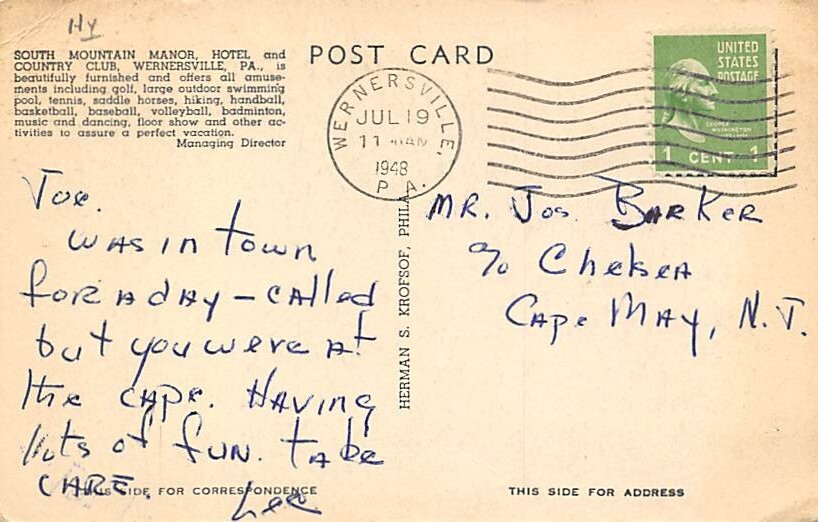 Hy
SOUTH MOUNTAIN MANOR, HOTEL and
COUNTRY CLUB, WERNERSVILLE, PA., is
beautifully furnished and offers all amuse-
ments including golf, large outdoor swimming
pool, tennis, saddle horses, hiking, handball,
basketball, baseball, volleyball, badminton,
music and dancing, floor show and other ac-
tivities to assure a perfect vacation.
Managing Director
POST CARD
WERNERSVILLE,
JUL 19
11 AM
1948
PA.
UNITED
STATES
POSTAGE
GEORGE
WASHINGTON
1 CENT 1
Joe.
WAS IN town
FOR A dAy – CAlled
but you were At
the CAPE. HAVING
lots of fun. tAke
CARE.
Lee
MR. Jos. BARKER
c/o ChelseA
Cape MAY, N.J.
HERMAN S. KROFSOF, PHILA.
THIS SIDE FOR CORRESPONDENCE
THIS SIDE FOR ADDRESS